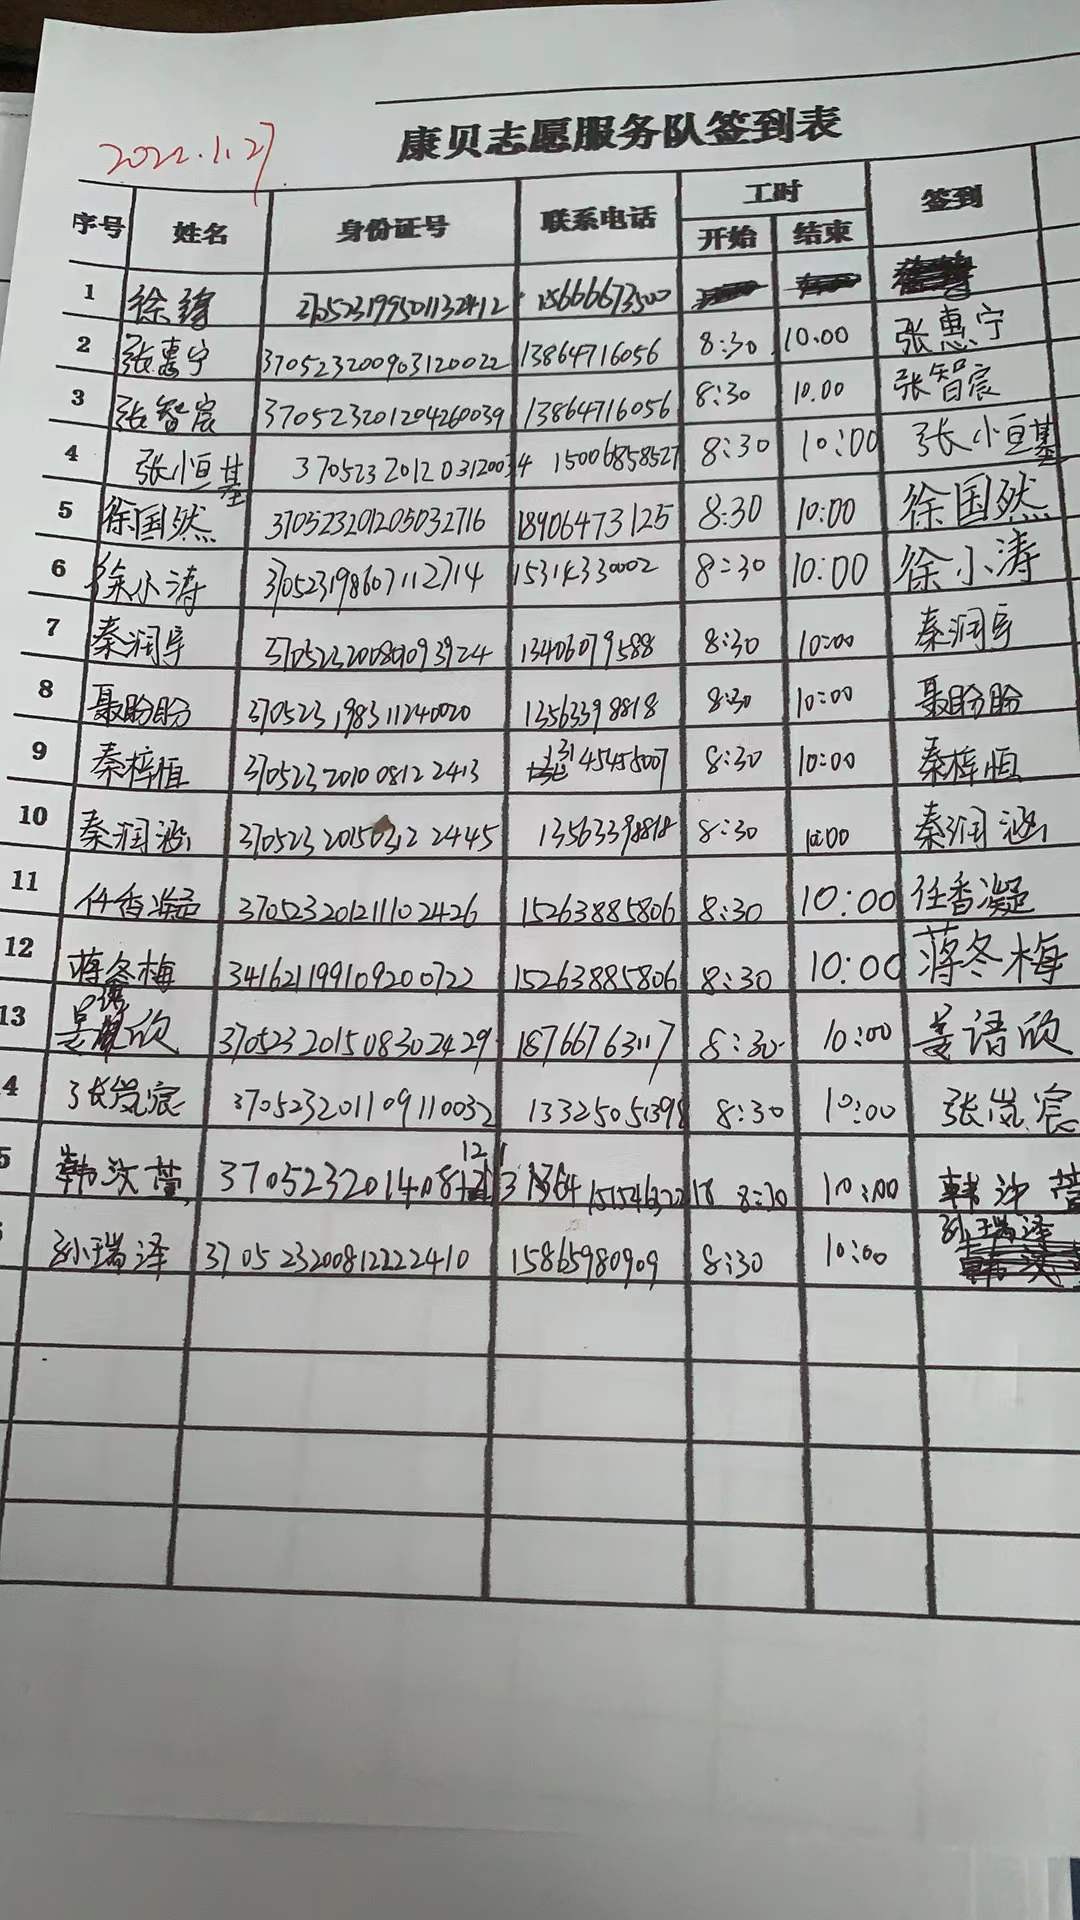 2022.1.27
康贝志愿服务队签到表
序号 姓名 身份证号 联系电话 工时 签到
开始 结束
1 徐 370523199501132412 15666673500
2 张惠宁 370523200903120022 13864716056 8:30 10.00 张惠宁
3 张智宸 370523201204260039 13864716056 8:30 10.00 张智宸
4 张小恒基 370523201203120034 15006858527 8:30 10:00 张小恒基
5 徐国然 370523201205032716 18906473125 8:30 10:00 徐国然
6 徐小涛 370523198607112714 15314330002 8:30 10:00 徐小涛
7 秦润宇 13406079588 8:30 10:00 秦润宇
8 聂盼盼 370523198311240020 13563398818 8:30 10:00 聂盼盼
9 秦梓恒 370523201008122413 8:30 10:00 秦梓恒
10 秦润涵 370523201503122445 13563398818 8:30 10:00 秦润涵
11 任香凝 370523201211102426 15263885806 8:30 10:00 任香凝
12 蒋冬梅 341621199109200722 15263885806 8:30 10:00 蒋冬梅
13 姜语欣 370523201508302429 18766763117 8:30 10:00 姜语欣
4 张岚宸 370523201109110032 13325051398 8:30 10:00 张岚宸
5 韩汶萱 8:30 10:00 韩汶萱
孙瑞泽 370523200812222410 15865980909 8:30 10:00 孙瑞泽